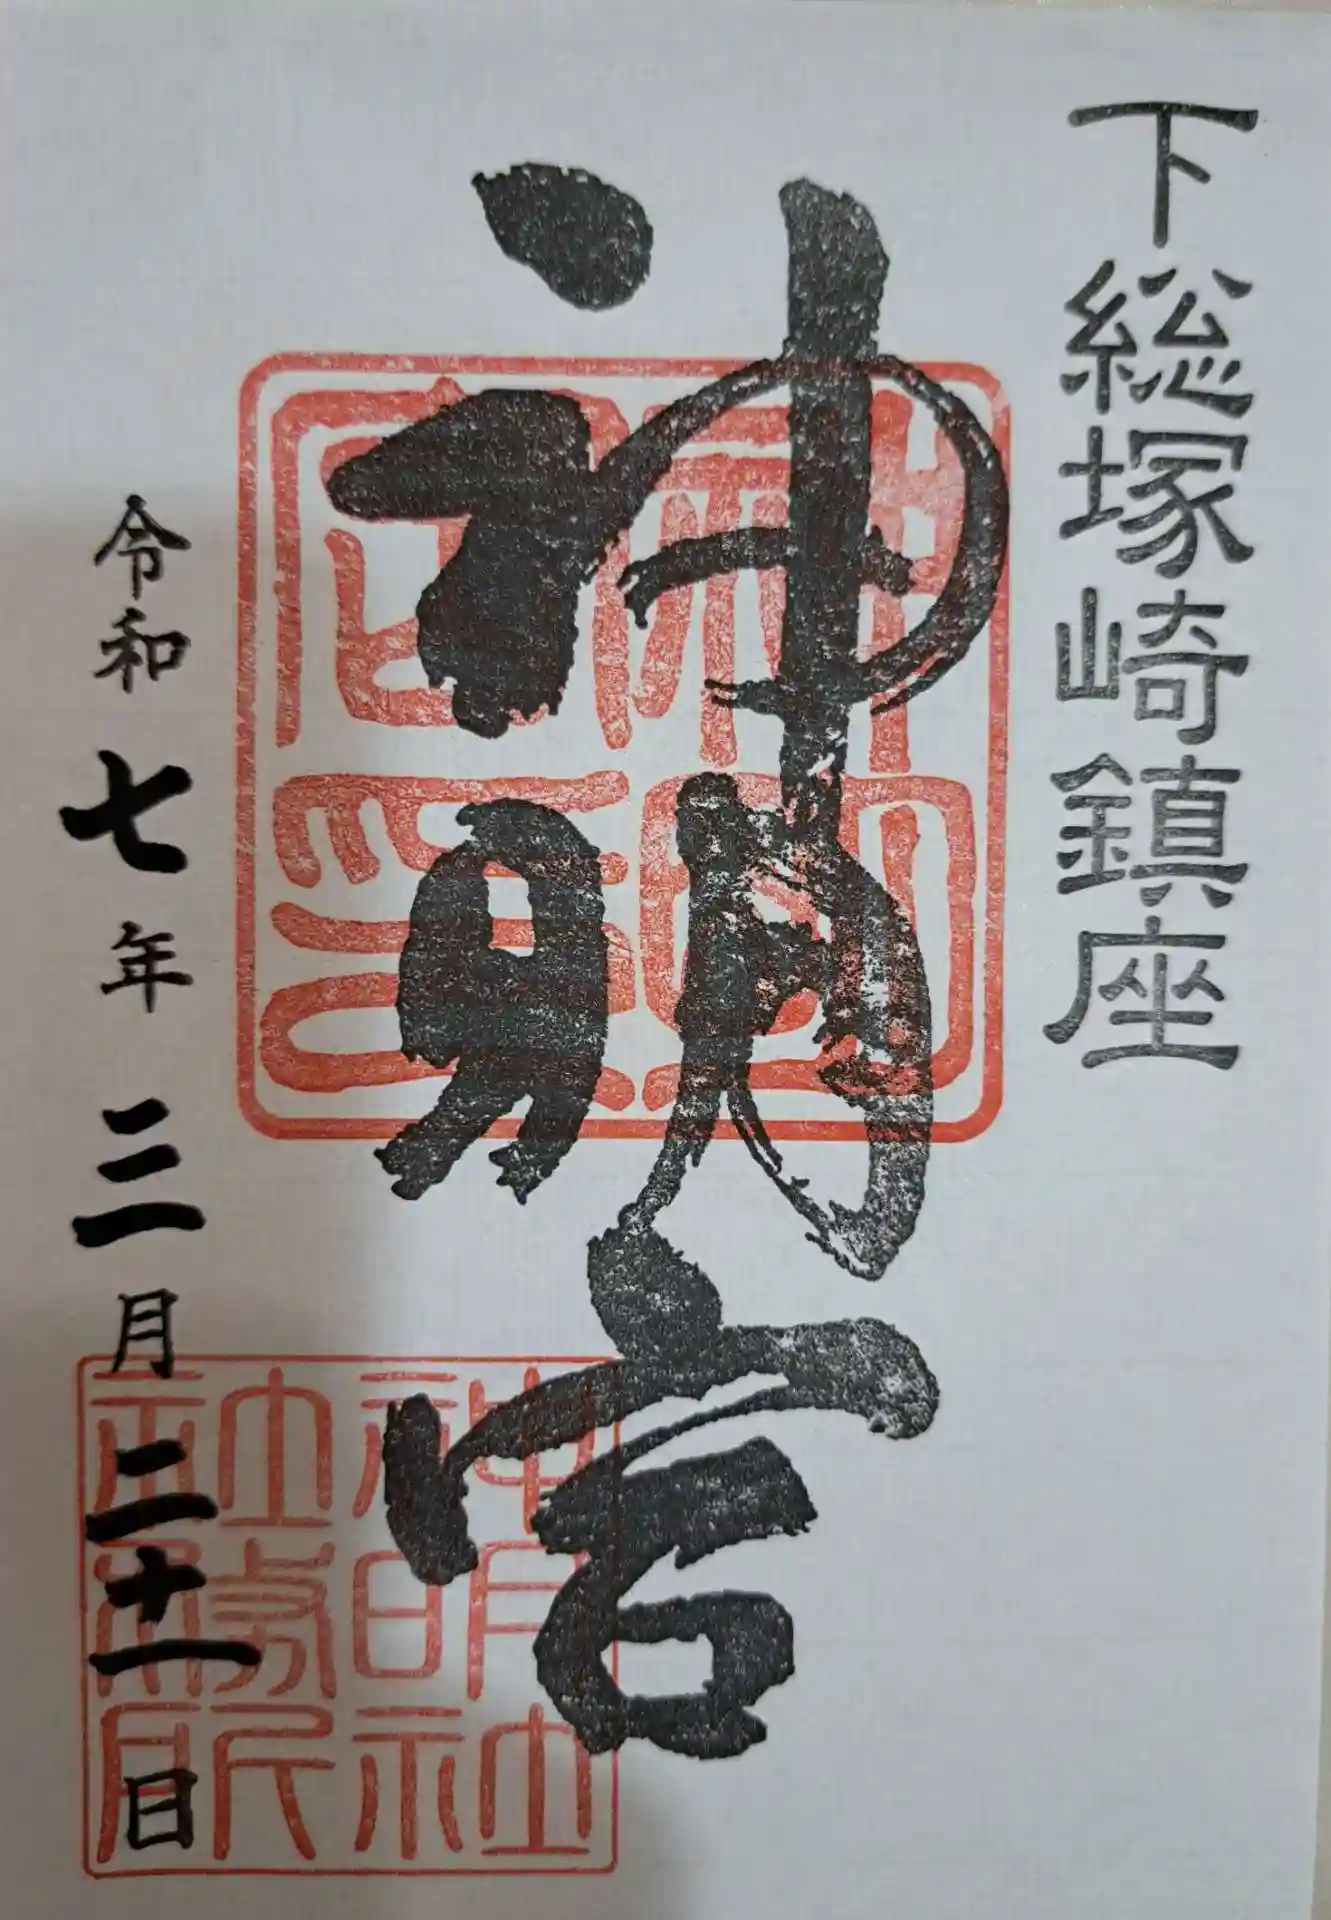 下総塚崎鎮座
神明宮
神明
宮印
令和七年三月二十一日
神明社
社務所